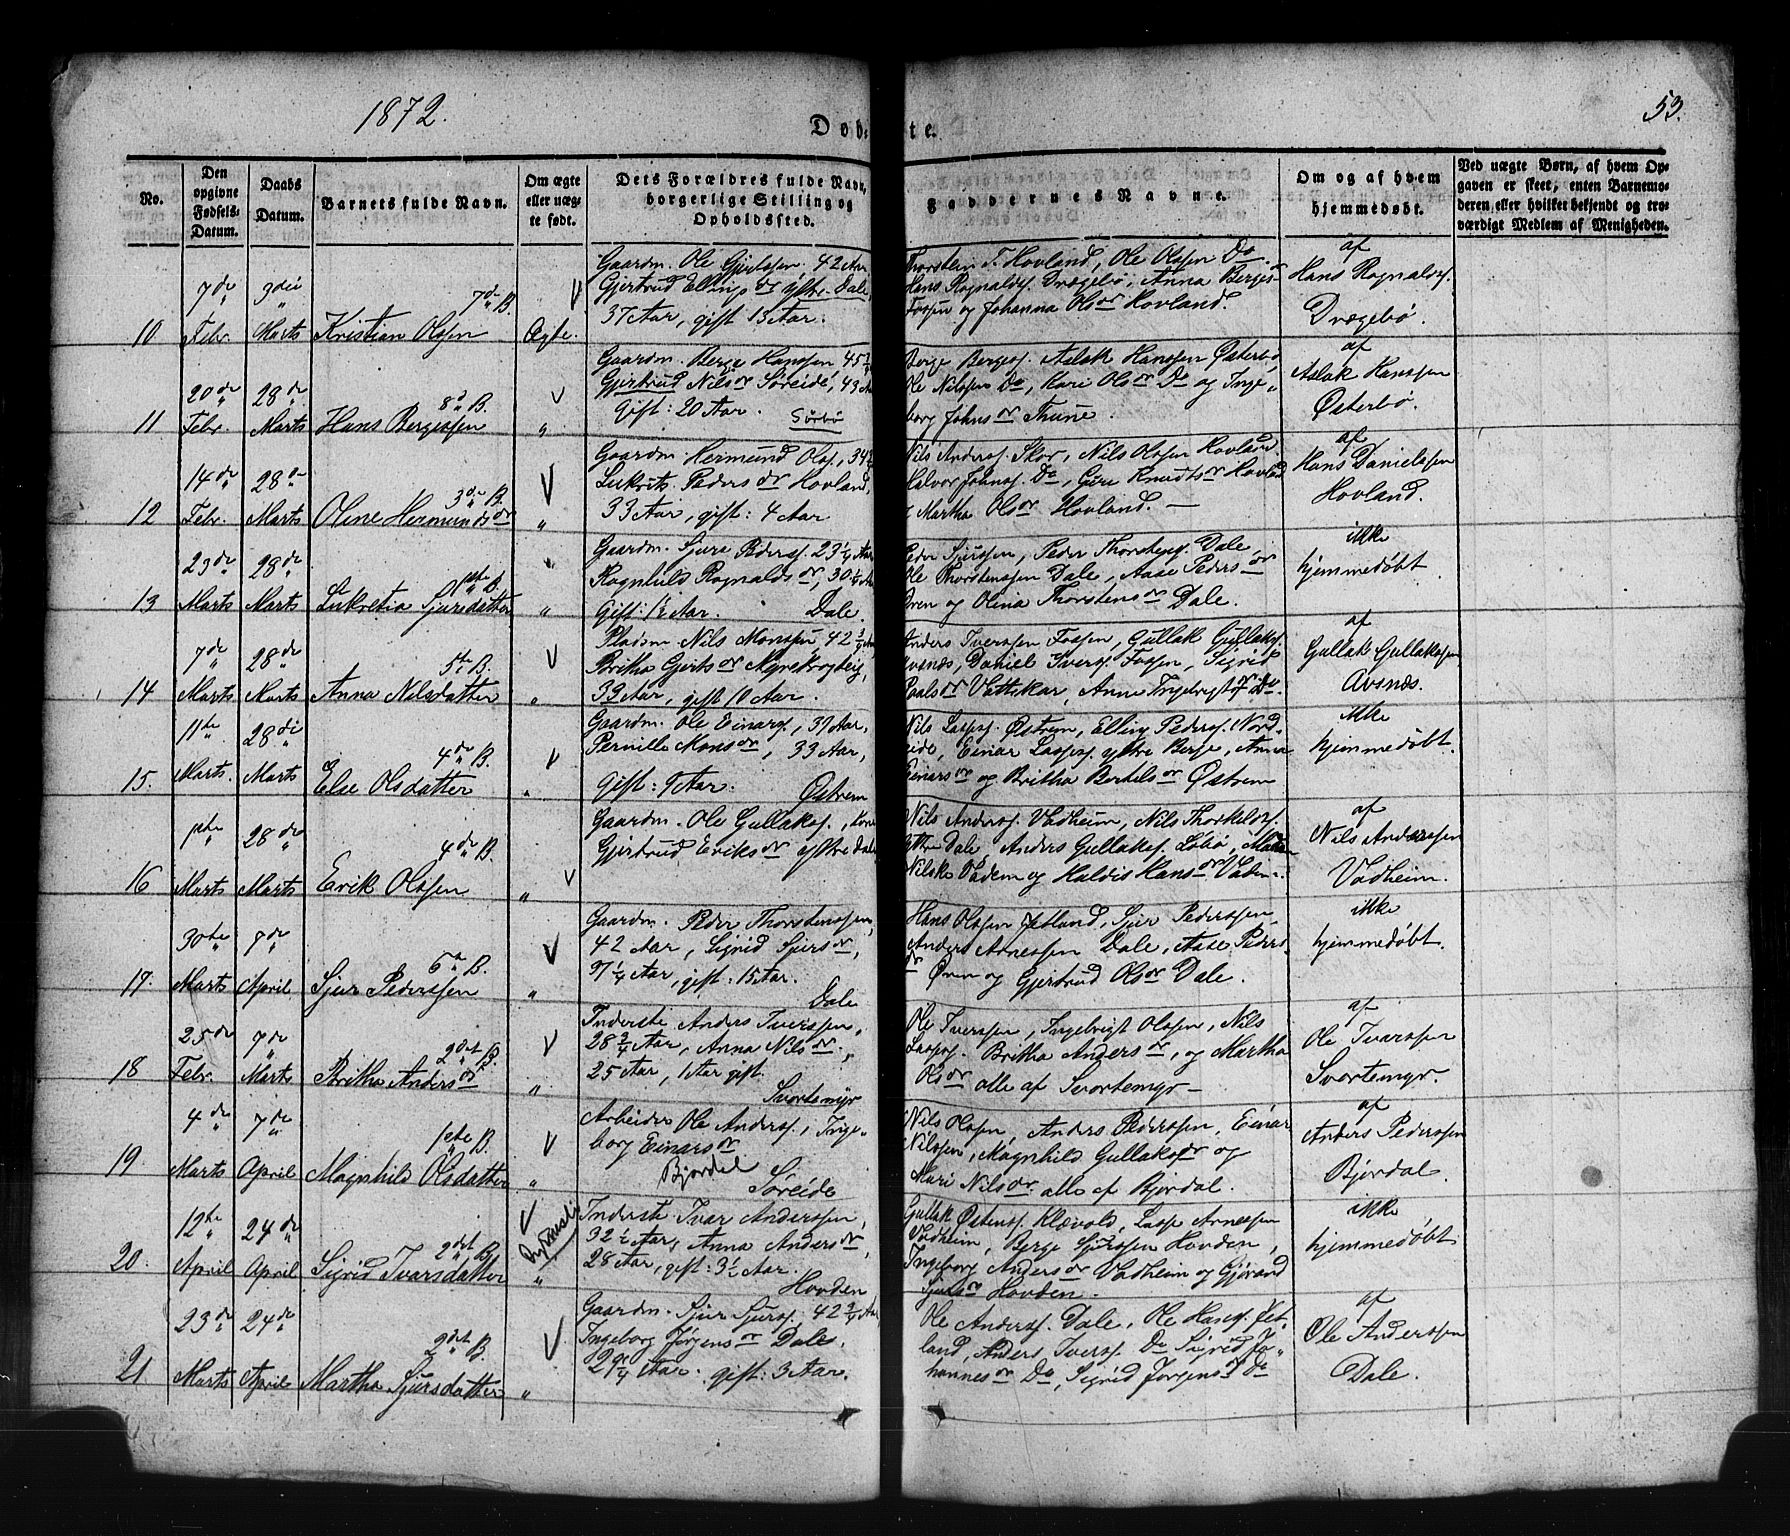 1872.
53.
Døb-
te.
No.
Den opgivne Fødsels-Datum.
Daabs Datum.
Barnets fulde Navn.
Om ægte eller uægte født.
Dets Forældres fulde Navn, borgerlige Stilling og Opholdssted.
Faddernes Navne.
Om og af hvem hjemmedøbt.
Ved uægte Børn, af hvem Opgaven er skeet, enten Barnemoderen, eller hvilket bekjendt og troværdigt Medlem af Menigheden.
10
7de Febr.
3die Marts
7de B.
Kristian Olssen
Ægte.
Gaardm. Ole 42 Aar
Gjertrud Ellings dr ystre Dale,
37 Aar, gift 15 Aar.
Thorstein T. Hovland, Ole Olssen Do
Hans Rognaldss. Drægebø, Anna Berges-
Fossen og Johanna Ols dr Hovland.
af
Hans Rognaldss.
Drægebø.
11
20de Febr.
28de Marts
8d B.
Hans Bergessen
"
Gaardm. Berge Hanssen, 45
Gjertrud Nils dr Søreide, 43 Aar
Gift: 20 Aar. Sørbø
Berge Bergess. Aslak Hanssen Østerbø,
Ole Nilssen Do, Kari Ols dr Do og Inge-
borg Johns dr Thune.
af
Aslak Hanssen
Østerbø.
12
14de Febr.
28de Marts
3de B.
Oline Hermunds dr
"
Gaardm. Hermund Olss., 34
Lukrets. Peders dr Hovland,
33 Aar, gift: 4 Aar
Nils Anderss. Skor, Nils Olssen Hovland.
Halvor Johnss. Do, Gure Knuts dr Hovland
Martha Ols dr Hovland. —
af
Hans Danielssen
Hovland.
13
23de Marts
28de Marts
1ste B.
Lukretia Sjursdatter
"
Gaardm. Sjur Pederss. 23 1/4 Aar
Ragnhild Rognalds dr, 30 1/4 Aar
Gift: 1½ Aar. Dale.
Peder Sjurssen, Peder Thorstenss. Dale,
Ole Thorstenssen Dale, Aase Peders dr
Øren og Olina Thorstens dr Dale.
ikke
hjemmedøbt
14
7de Marts
28de Marts
5te B.
Anna Nilsdatter
"
Pladsm. Nils Monssen, 42 3/4 Aar
Britha Gjerts dr
33 Aar, gift 10 Aar.
Anders Iverssen Fossen, Gullak Gullakss.
Avsnæs, Daniel Iverss. Fossen, Sigrid
Paals dr Vattekar, Anne Ingebrigts dr Do.
af
Gullak Gullakssen
Avsnæs.
15.
11te Marts.
28de Marts
4de B.
Else Olsdatter
"
Gaardm. Ole Einarss., 37 Aar,
Pernille Mons dr, 33 Aar,
Gift: 9 Aar. Østrem
Nils Lasss. Østrem, Elling Pederss. Nord-
eide, Einar Lasss. ystre Berge, Anna
Einars dr og Britha Bertels dr Østrem
ikke
hjemmedøbt.
16
1ste Marts
28de Marts
4de B.
Erik Olssen
"
Gaardm. Ole Gullakss., Kone
Gjertrud Eriks dr ystre Dale
Nils Anderss. Vadheim, Nils Thorkelss.
Dale Anders Gullakss. Løbø,
og Haldis Hans dr
af
Nils Anderssen
Vadheim.
17.
30te Marts
7de April
6te B.
Sjur Pederssen
"
Gaardm. Peder Thorstenssen,
42 Aar, Sigrid Sjurs dr,
37 1/4 Aar, gift: 15 Aar.
Dale
Hans Olssen Jetland, Sjur Pederssen
Anders Arnessen Dale, Aase Peders-
dr Øren og Gjertrud Ols dr Dale.
ikke
hjemmedøbt.
18
25de Febr.
7de Marts
2det B.
Britha Anders dr
"
Inderste Anders Iverssen,
28 3/4 Aar, Anna Nils dr,
25 Aar, 1 Aar gift.
Svortemyr
Ole Iverssen, Ingebrigt Olssen, Nils
Lasss. Britha Anders dr, og Martha
Ols dr alle af Svortemyr —
af
Ole Ivarssen
Svortemyr.
19.
4de Marts
7de April
1ste B.
Magnhild Olsdatter
"
Arbeider Ole Anderss., Inge-
borg Einars dr
Bjordal Søreide
Nils Olssen, Anders Pederssen, Einar
Nilssen, Magnhild Gullaks dr og
Mari Nils dr alle af Bjordal.
af
Anders Pederssen
Bjordal.
20.
12te April
24de April
2det B.
Sigrid Ivarsdatter
"
Inderste Ivar Anderssen,
32½ Aar, Anna Anders dr,
28 Aar, gift: 3½ Aar.
Hovden
Gullak Østenss. Klævold, Lasse Arnessen
Vadheim, Berge Sjurssen Hovden,
Ingeborg Anders dr Vadheim og Gjørand
Sjurs dr Hovden.
ikke
hjemmedøbt
21
23de Marts
24de April
2det B.
Martha Sjursdatter
"
Gaardm. Sjur Sjurss. 42 3/4 Aar
Ingeborg Jørgens dr Dale,
29 1/4 Aar. gift: 3 Aar.
Ole Anderss. Dale, Ole Hanss. Jet-
land, Anders Iverss. Do Sigrid Jo-
hannes dr Do, Sigrid Jørgens dr Do
af
Ole Anderssen
Dale.